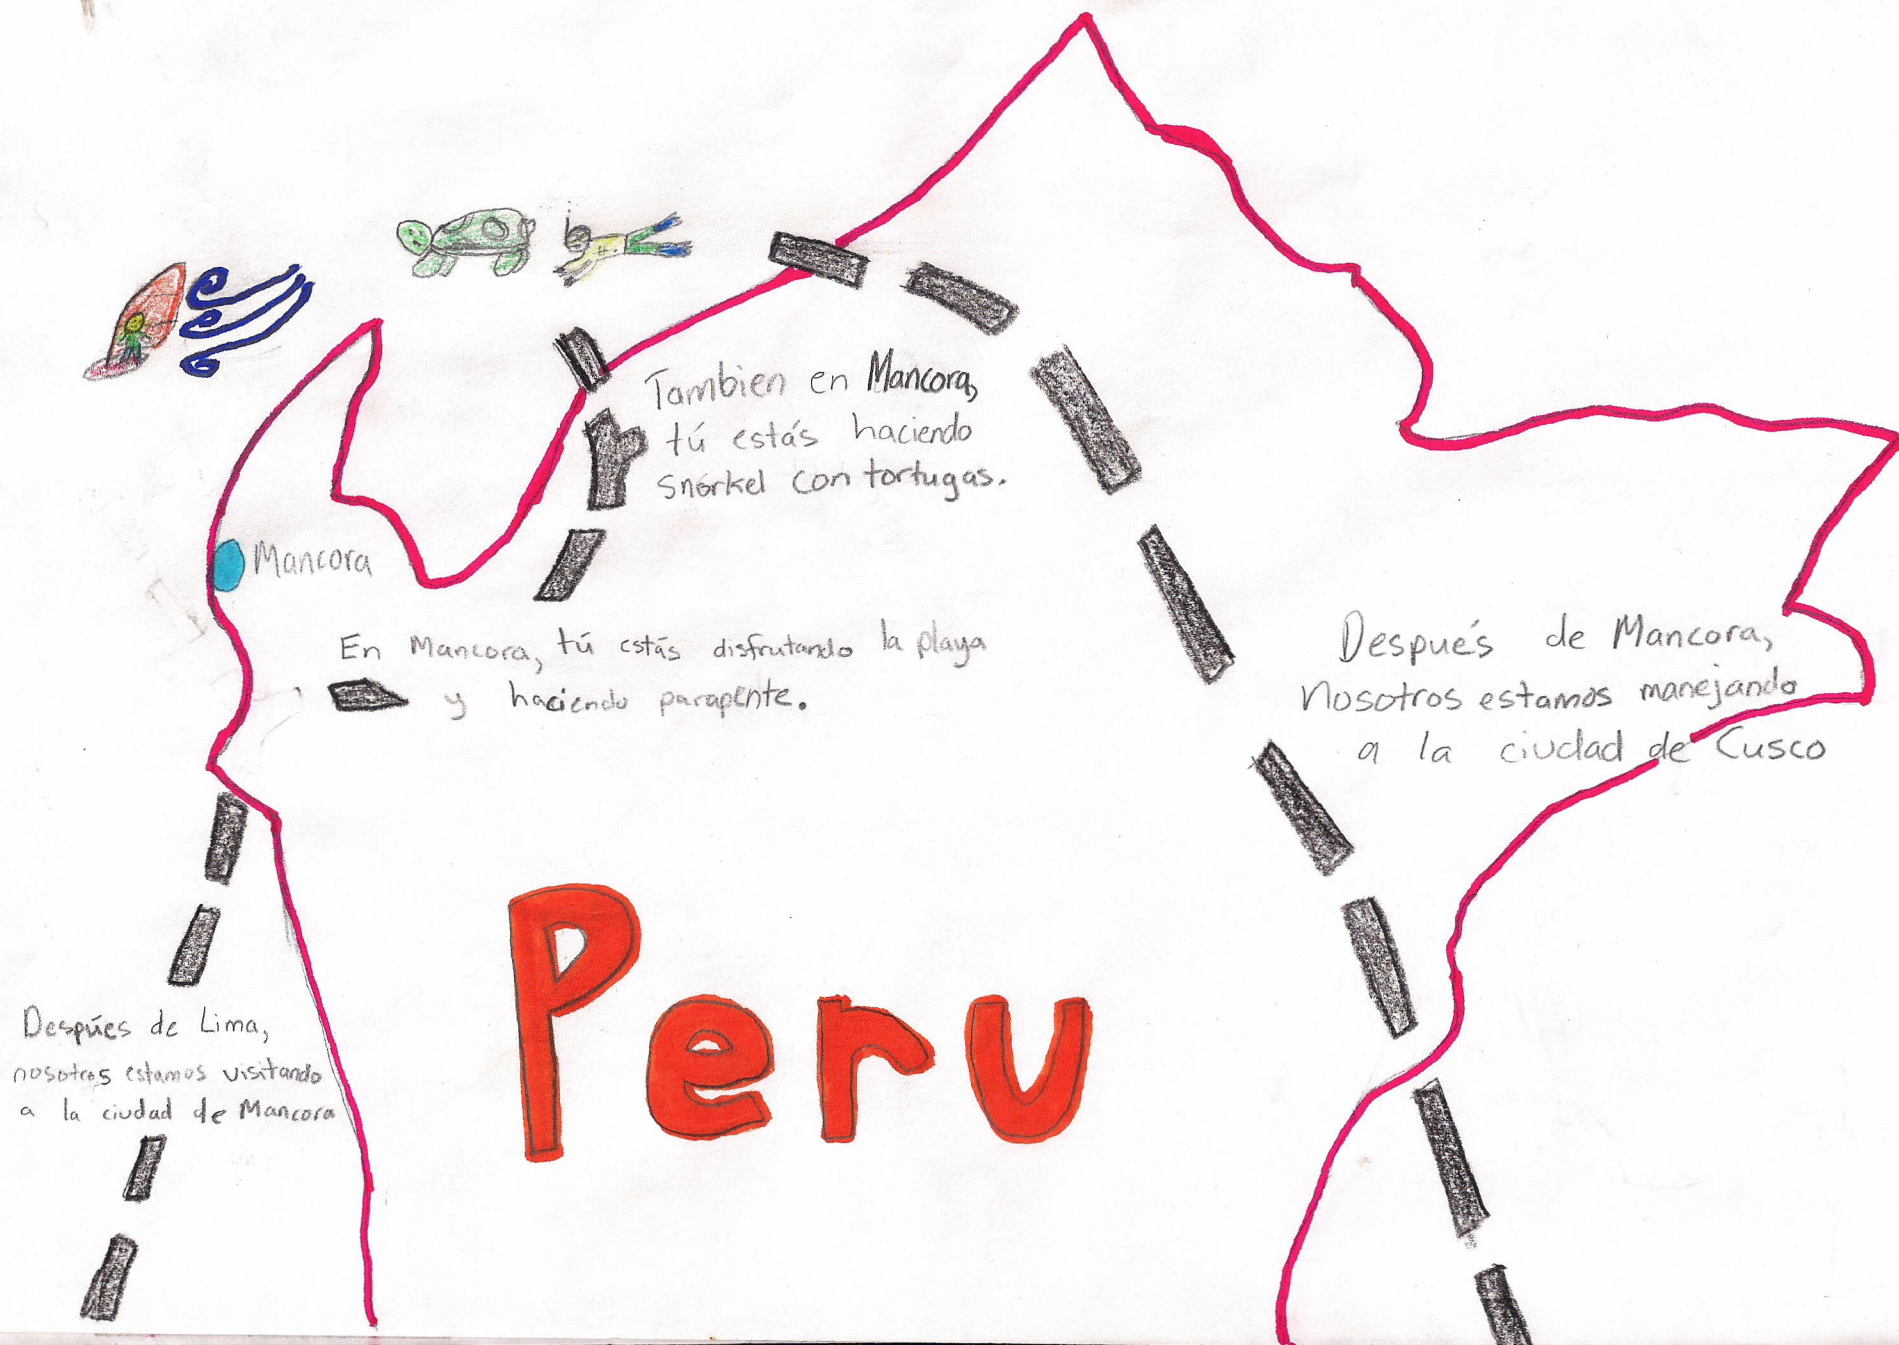 Tambien en Mancora,
tú estás haciendo
snorkel con tortugas.
Mancora
En Mancora, tú estás disfrutando la playa
y haciendo parapente.
Después de Mancora,
nosotros estamos manejando
a la ciudad de Cusco
Peru
Despúes de Lima,
nosotros estamos visitando
a la ciudad de Mancora